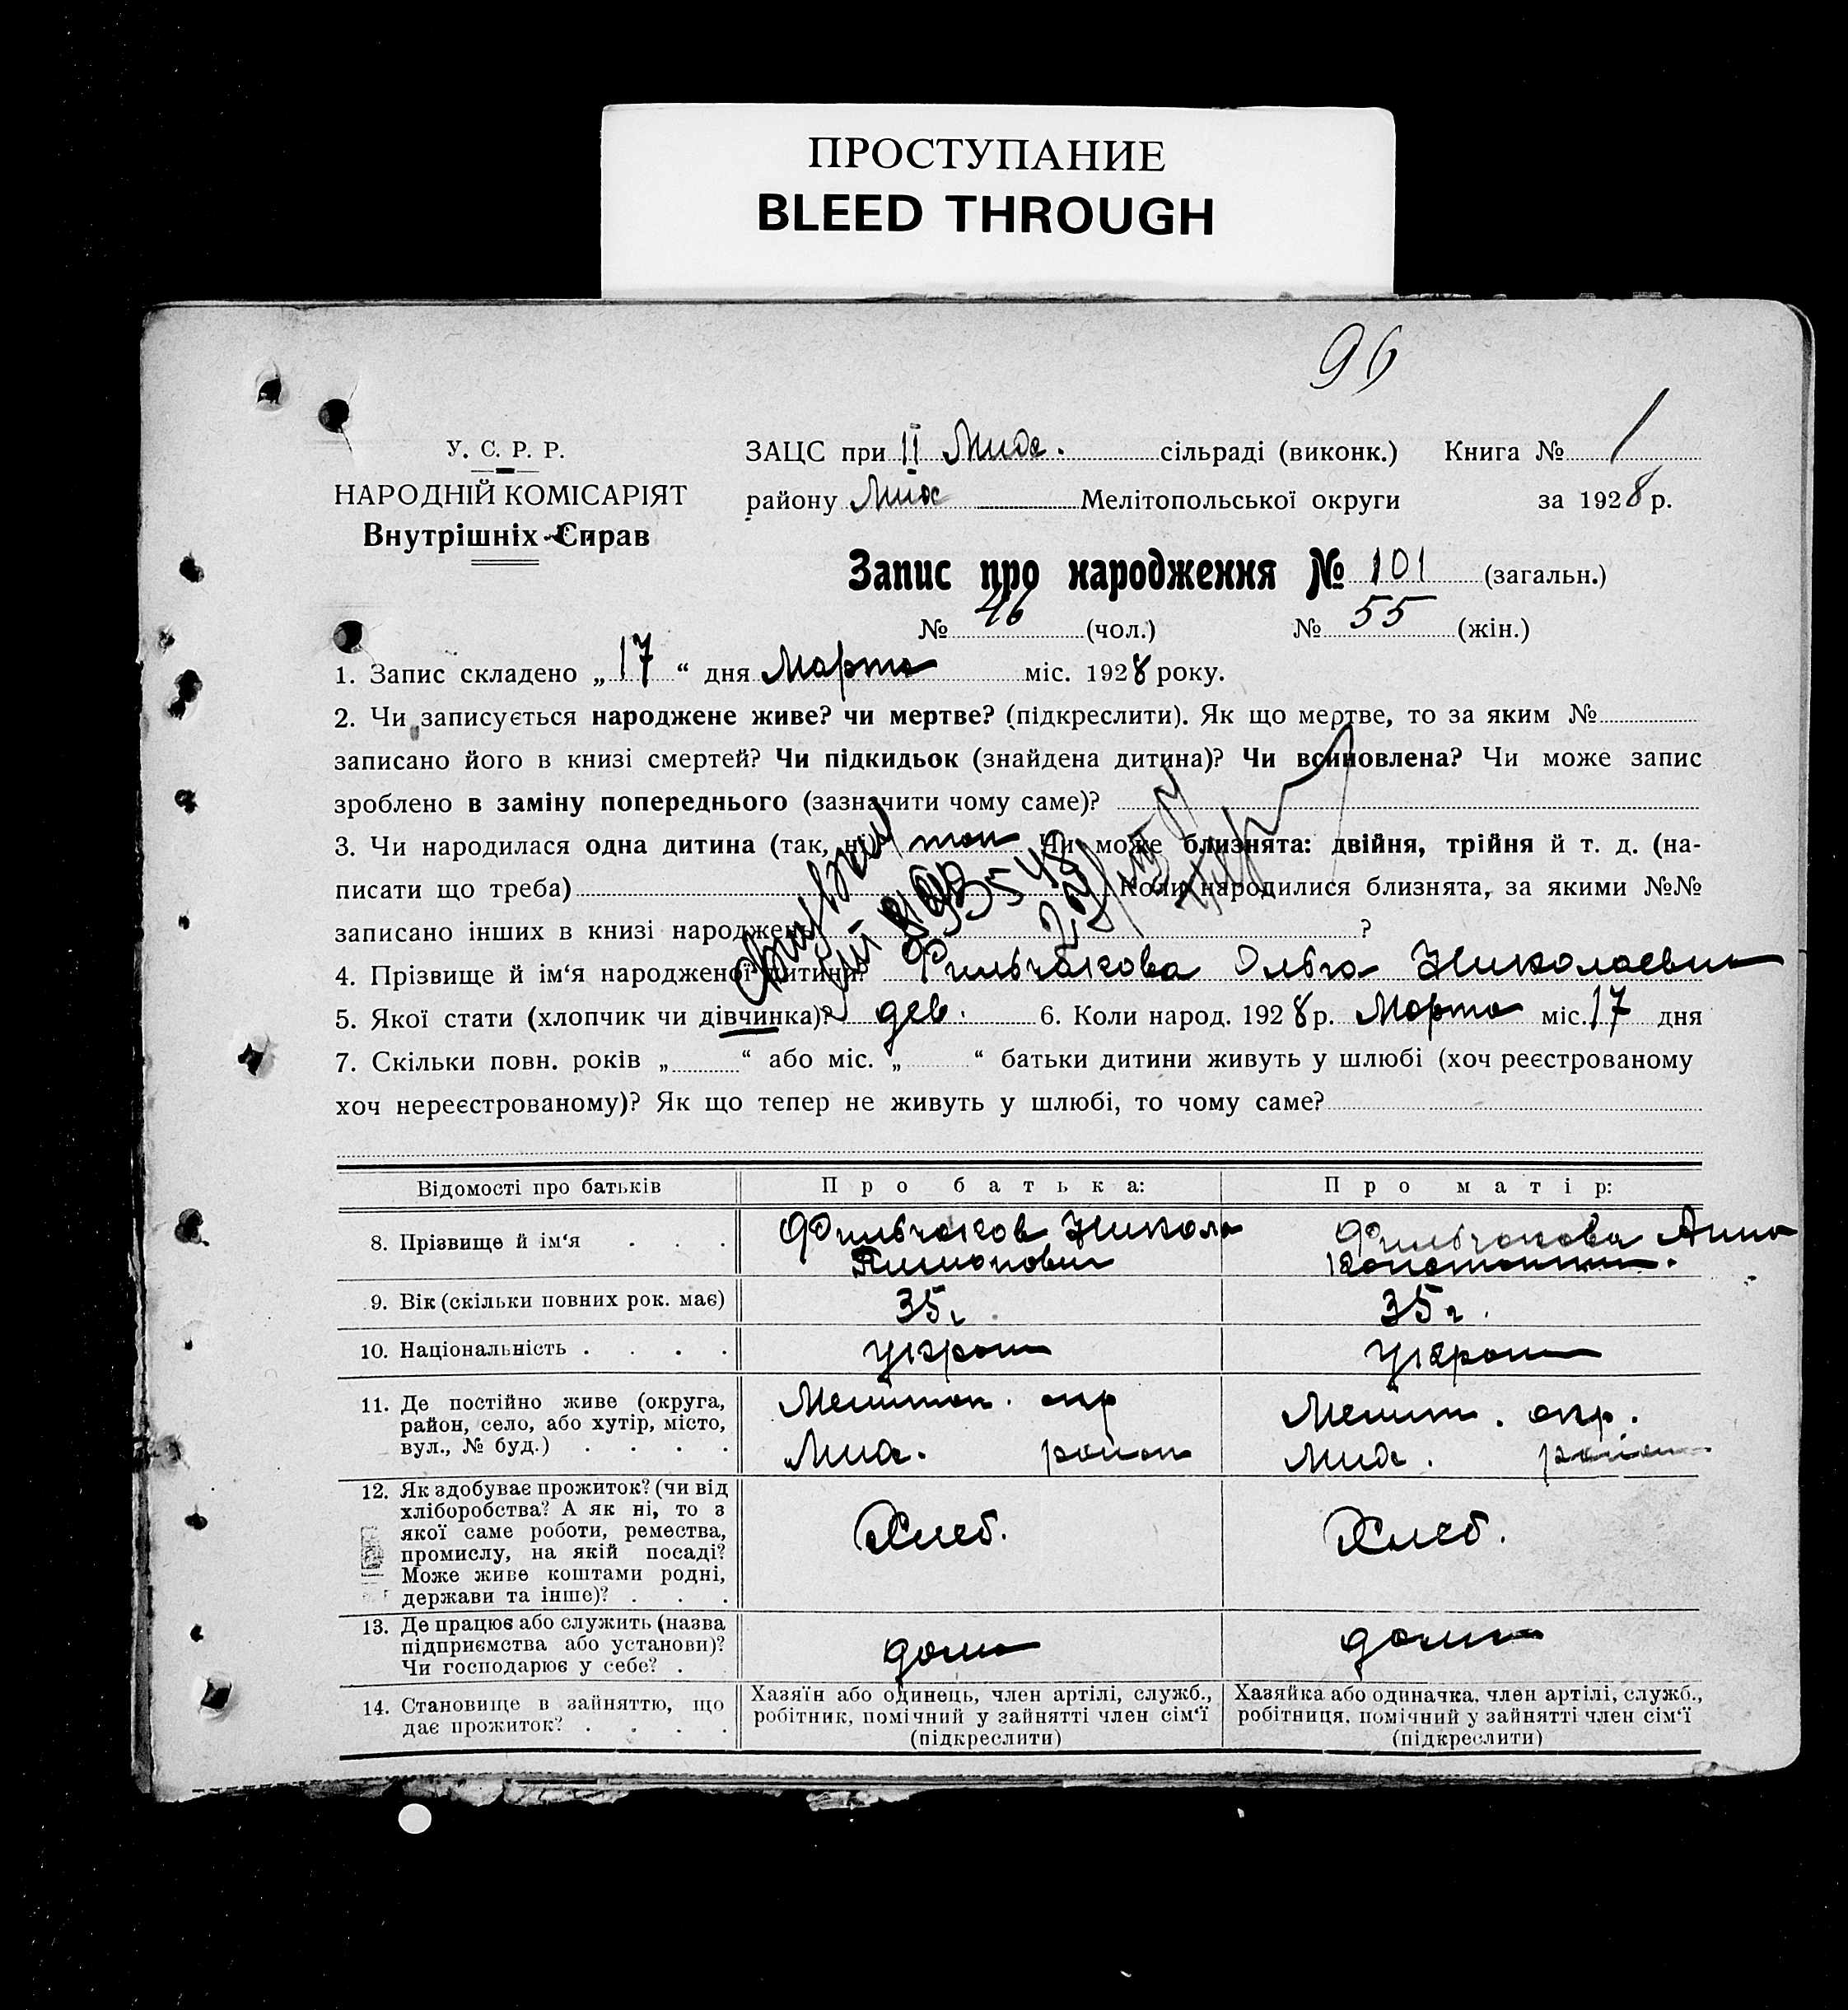 ПРОСТУПАНИЕ
BLEED THROUGH
96
У. С. Р. Р.
НАРОДНІЙ КОМІСАРІЯТ
Внутрішніх Справ
ЗАЦС при II Мих. сільраді (виконк.) Книга № 1
району Мих Мелітопольської округи за 1928 р.
Запис про народження № 101 (загальн.)
№ 46 (чол.) № 55 (жін.)
1. Запис складено „17“ дня Марта міс. 1928 року.
2. Чи записується народжене живе? чи мертве? (підкреслити). Як що мертве, то за яким №
записано його в книзі смертей? Чи підкидьок (знайдена дитина)? Чи всиновлена? Чи може запис
зроблено в заміну попереднього (зазначити чому саме)?
3. Чи народилася одна дитина (так, ні) так Чи може близнята: двійня, трійня й т. д. (на-
писати що треба) Коли народилися близнята, за якими №№
записано інших в книзі народжень ?
4. Прізвище й ім‘я народженої дитини? Фильчакова Ольга Николаевна
5. Якої стати (хлопчик чи дівчинка)? дев. 6. Коли народ. 1928 р. Марта міс. 17 дня
7. Скільки повн. років „ “ або міс. „ “ батьки дитини живуть у шлюбі (хоч реєстрованому
хоч нереєстрованому)? Як що тепер не живуть у шлюбі, то чому саме?
Відомості про батьків Про батька: Про матір:
8. Прізвище й ім‘я . . . Фильчаков Никола Фильчакова Анна
9. Вік (скільки повних рок. має) 35 г. 35 г.
10. Національність . . . . украин украин
11. Де постійно живе (округа,
район, село, або хутір, місто,
вул., № буд.) . . . .
Мелитоп. окр Мелит. окр.
Мих. район Мих. район
12. Як здобуває прожиток? (чи від
хліборобства? А як ні, то з
якої саме роботи, ремества,
промислу, на якій посаді?
Може живе коштами родні,
держави та інше)? . . .
Хлеб. Хлеб.
13. Де працює або служить (назва
підприємства або установи)?
Чи господарює у себе? .
дома дома
14. Становище в зайняттю, що
дає прожиток? . . . .
Хазяїн або одинець, член артілі, служб.,
робітник, помічний у зайнятті член сім‘ї
(підкреслити)
Хазяйка або одиначка, член артілі, служб.,
робітниця, помічний у зайнятті член сім‘ї
(підкреслити)